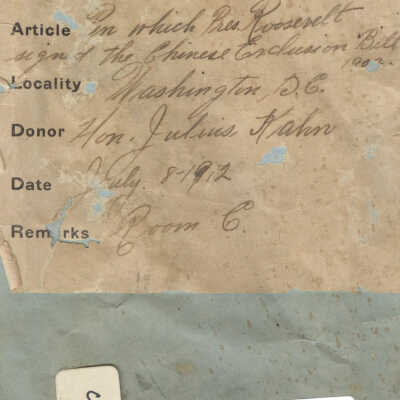 Article Pen in which Pres. Roosevelt
sign of the Chinese Exclusion Bill
1902.
Locality Washington, D.C.
Donor Hon. Julius Kahn
Date July 8-1912
Remarks Room C.